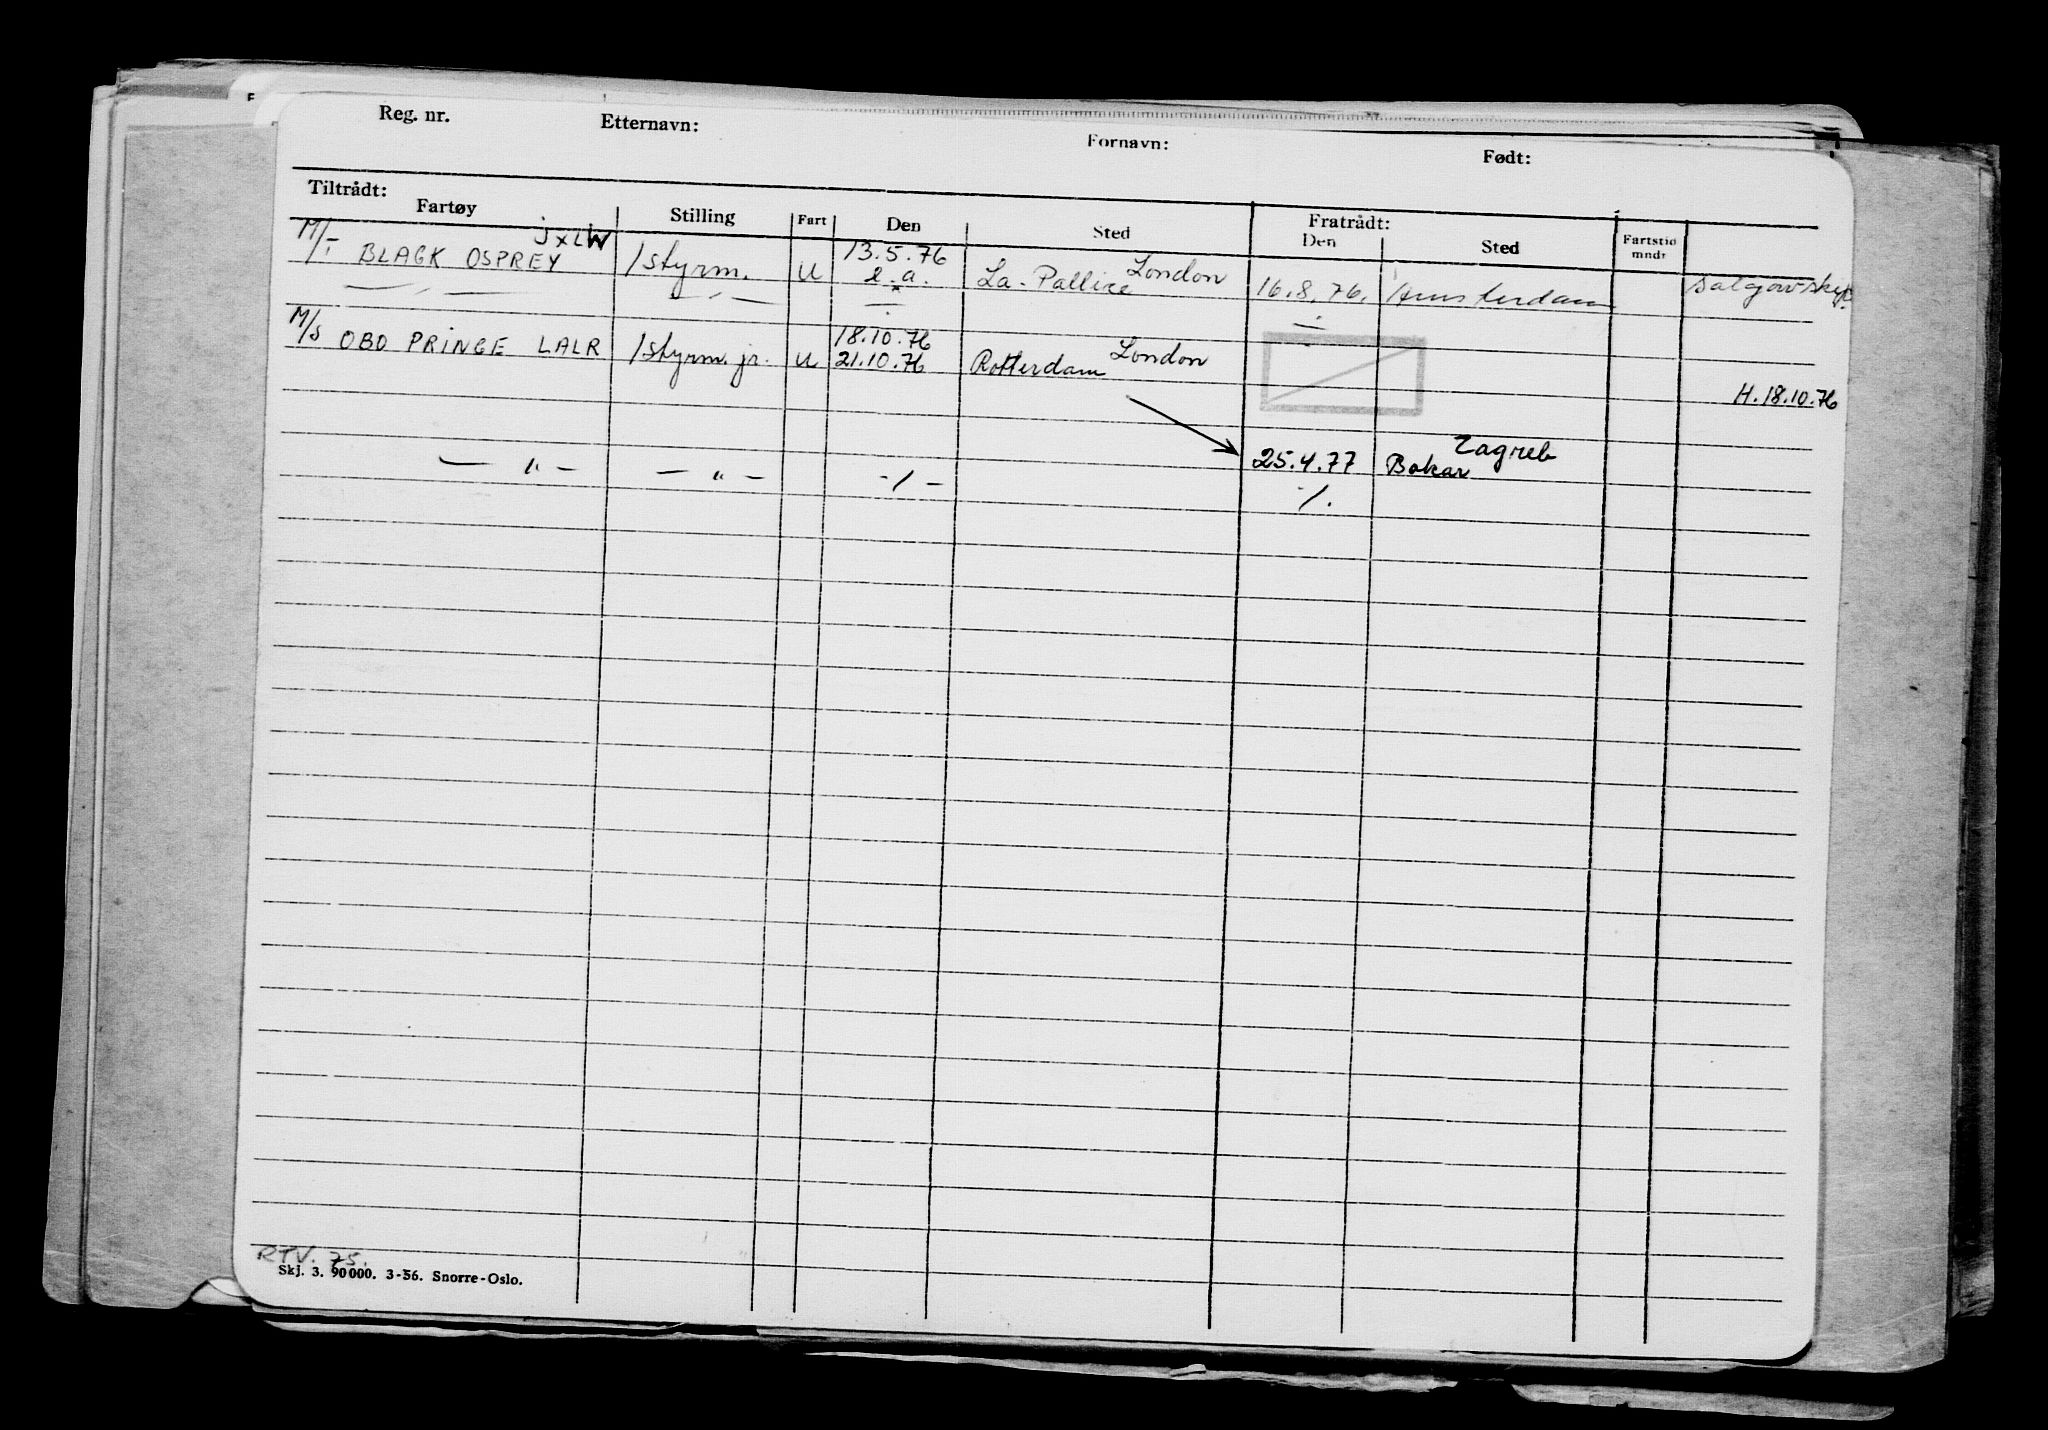 Reg. nr. Etternavn: Fornavn: Født:
Tiltrådt: Fratrådt:
Fartøy Stilling Fart Den Sted Den Sted Fartstid mndr
M/T BLACK OSPREY JXLW 1 styrm. U 13.5.76 London
s.a. La-Pallice 16.8.76. Amsterdam
— " — — " —
M/S OBO PRINCE LALR 1 styrm. jr. U 18.10.76 London
21.10.76 Rotterdam
H. 18.10.76
Zagreb
— " — — " — -/- 25.4.77 Bakar
-/.
RTV. 75.
Skj. 3. 90000. 3-56. Snorre-Oslo.